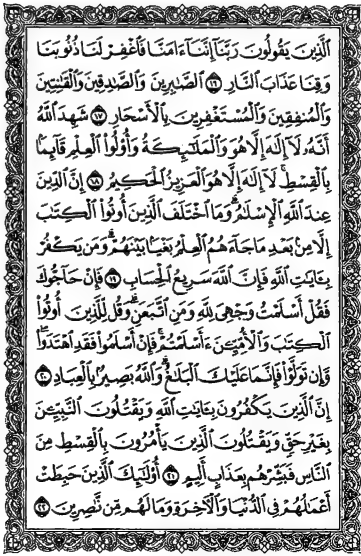 ٱلَّذِينَ يَقُولُونَ رَبَّنَآ إِنَّنَآ ءَامَنَّا فَٱغْفِرْ لَنَا ذُنُوبَنَا
وَقِنَا عَذَابَ ٱلنَّارِ ١٦ ٱلصَّٰبِرِينَ وَٱلصَّٰدِقِينَ وَٱلْقَٰنِتِينَ
وَٱلْمُنفِقِينَ وَٱلْمُسْتَغْفِرِينَ بِٱلْأَسْحَارِ ١٧ شَهِدَ ٱللَّهُ
أَنَّهُۥ لَآ إِلَٰهَ إِلَّا هُوَ وَٱلْمَلَٰٓئِكَةُ وَأُو۟لُوا۟ ٱلْعِلْمِ قَآئِمًۢا
بِٱلْقِسْطِ ۚ لَآ إِلَٰهَ إِلَّا هُوَ ٱلْعَزِيزُ ٱلْحَكِيمُ ١٨ إِنَّ ٱلدِّينَ
عِندَ ٱللَّهِ ٱلْإِسْلَٰمُ ۗ وَمَا ٱخْتَلَفَ ٱلَّذِينَ أُوتُوا۟ ٱلْكِتَٰبَ
إِلَّا مِنۢ بَعْدِ مَا جَآءَهُمُ ٱلْعِلْمُ بَغْيًۢا بَيْنَهُمْ ۗ وَمَن يَكْفُرْ
بِـَٔايَٰتِ ٱللَّهِ فَإِنَّ ٱللَّهَ سَرِيعُ ٱلْحِسَابِ ١٩ فَإِنْ حَآجُّوكَ
فَقُلْ أَسْلَمْتُ وَجْهِىَ لِلَّهِ وَمَنِ ٱتَّبَعَنِ ۗ وَقُل لِّلَّذِينَ أُوتُوا۟
ٱلْكِتَٰبَ وَٱلْأُمِّيِّـۧنَ ءَأَسْلَمْتُمْ ۚ فَإِنْ أَسْلَمُوا۟ فَقَدِ ٱهْتَدَوا۟ ۖ
وَّإِن تَوَلَّوْا۟ فَإِنَّمَا عَلَيْكَ ٱلْبَلَٰغُ ۗ وَٱللَّهُ بَصِيرٌۢ بِٱلْعِبَادِ ٢٠
إِنَّ ٱلَّذِينَ يَكْفُرُونَ بِـَٔايَٰتِ ٱللَّهِ وَيَقْتُلُونَ ٱلنَّبِيِّـۧنَ
بِغَيْرِ حَقٍّ وَيَقْتُلُونَ ٱلَّذِينَ يَأْمُرُونَ بِٱلْقِسْطِ مِنَ
ٱلنَّاسِ فَبَشِّرْهُم بِعَذَابٍ أَلِيمٍ ٢١ أُو۟لَٰٓئِكَ ٱلَّذِينَ حَبِطَتْ
أَعْمَٰلُهُمْ فِى ٱلدُّنْيَا وَٱلْـَٔاخِرَةِ وَمَا لَهُم مِّن نَّٰصِرِينَ ٢٢